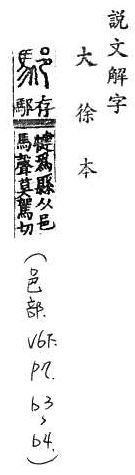 說文解字
大徐本
存
犍爲縣从邑
馬聲莫駕切
(邑部. V6下. P7. b3, b4.)